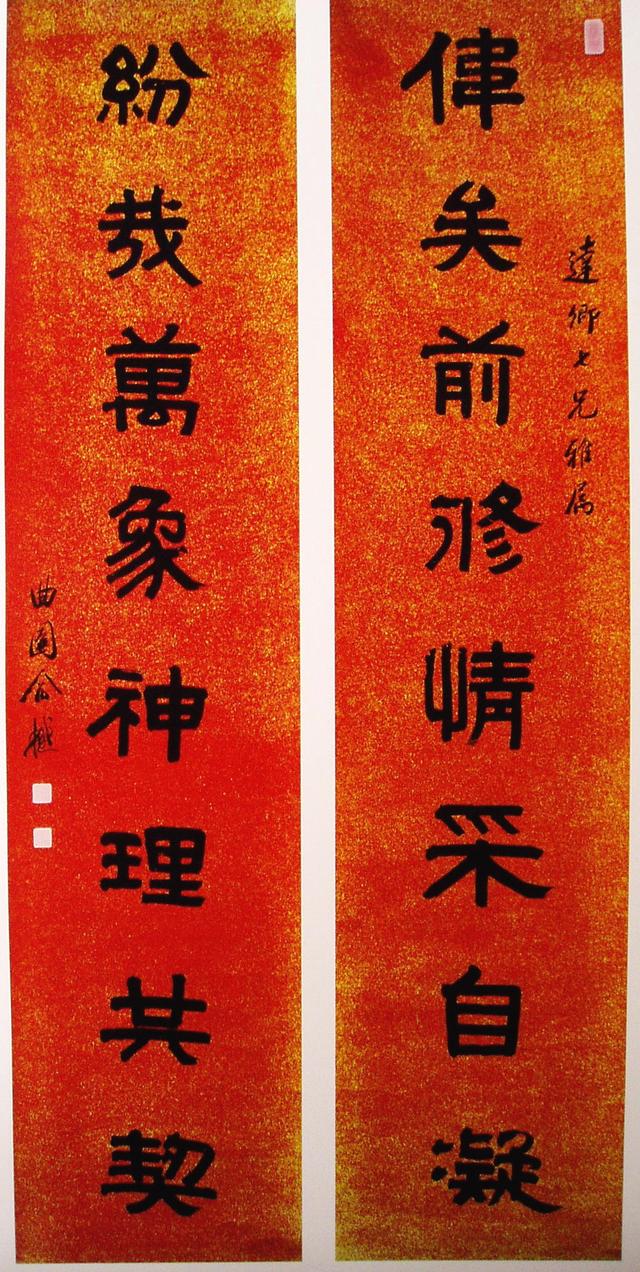 達卿七兄雅属
偉矣前修情采自凝
紛哉萬象神理共契
曲園俞樾